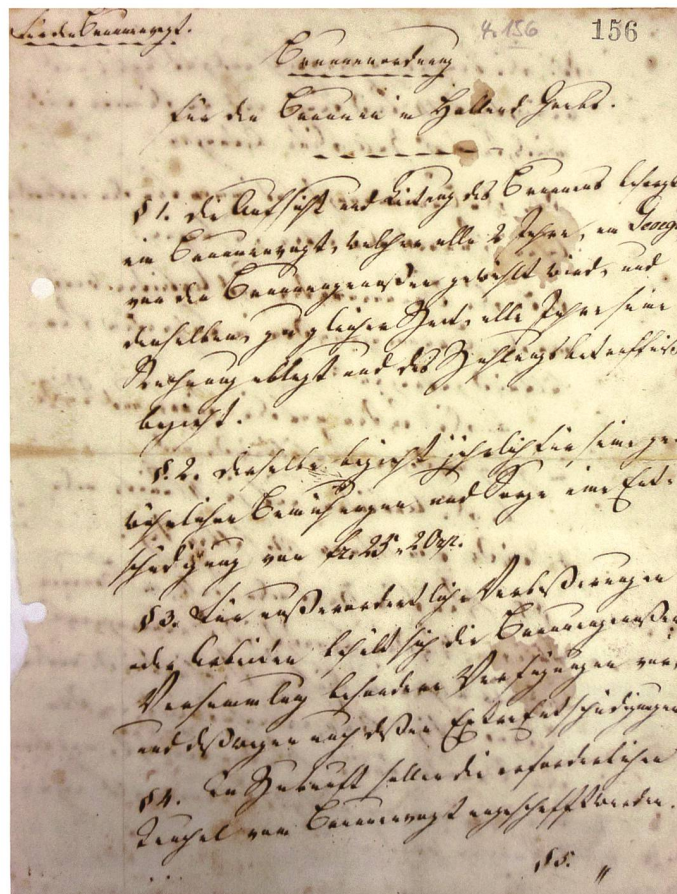 Für den Brunnenvogt.
4.156
156
Brunnenordnung
für den Brunnen in
§ 1. Die Aufsicht und Leitung des Brunnens besorgt
ein Brunnenvogt, welcher alle 2 Jahre, an Georgi
von den Brunnengenossen gewählt wird, und
denselben zu gleicher Zeit alle Jahre seine
Rechnung ablegt und das Zahlungsbetreffniss
bezieht.
§ 2. Derselbe bezieht jährlich für seine ge-
wöhnlichen Bemühungen und Sorge eine Ent-
schädigung von fr. 25. 20 rp.
§ 3. Für außerordentliche Verbeßerungen
oder Arbeiten behält sich die Brunnengenoßen
Versammlung besondere Verfügungen vor
und deßwegen auch deßen Extra Entschädigungen
§ 4. In Zukunft sollen die erforderlichen
Teuchel vom Brunnenvogt angeschafft werden.
§ 5.